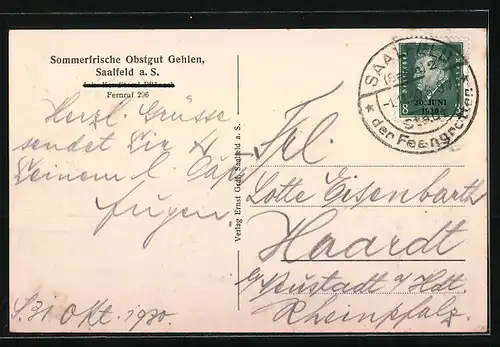 Sommerfrische Obstgut Gehlen,
Saalfeld a. S.
Fernruf 296
Herzl. Grüsse
sendet Dir
Deinem l.
S. 31 Okt. 1930.
Verlag Ernst Saalfeld a. S.
SAALFELD
der Feengrotten
30. JUNI
1930
8 8
Frl.
Lotte Eisenbarth
Haardt
b/ Neustadt a/ Hdt.
Rheinpfalz.